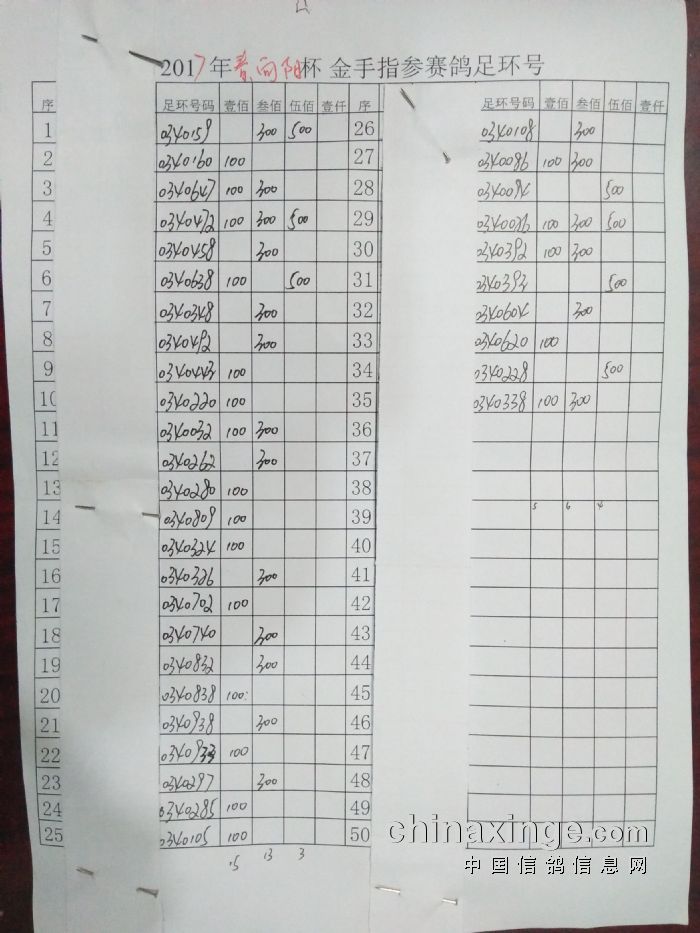 2017年春向阳杯 金手指参赛鸽足环号
序 足环号码 壹佰 叁佰 伍佰 壹仟 序 足环号码 壹佰 叁佰 伍佰 壹仟
1 0340159 300 500 26 0340108 300
2 0340160 100 27 0340086 100 300
3 0340647 100 300 28 0340094 500
4 0340472 100 300 500 29 0340026 100 300 500
5 0340458 300 30 0340392 100 300
6 0340638 100 500 31 0340393 500
7 0340348 300 32 0340604 300
8 0340492 300 33 0340620 100
9 0340443 100 34 0340228 500
10 0340220 100 35 0340338 100 300
11 0340032 100 300 36
12 0340262 300 37
13 0340280 100 38
14 0340809 100 39 5 6 4
15 0340324 100 40
16 0340326 300 41
17 0340702 100 42
18 0340740 300 43
19 0340832 300 44
20 0340838 100 45
21 0340938 300 46
22 0340933 100 47
23 0340297 300 48
24 0340285 100 49
25 0340105 100 50
15 13 3
chinaxinge.com
中国信鸽信息网